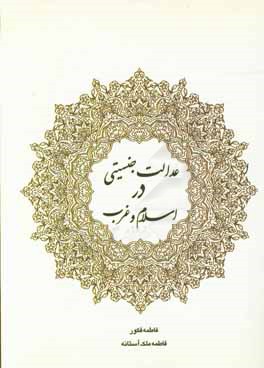 عدالت جنسیتی
در
اسلام و غرب
فاطمه فکور
فاطمه ملک آستانه